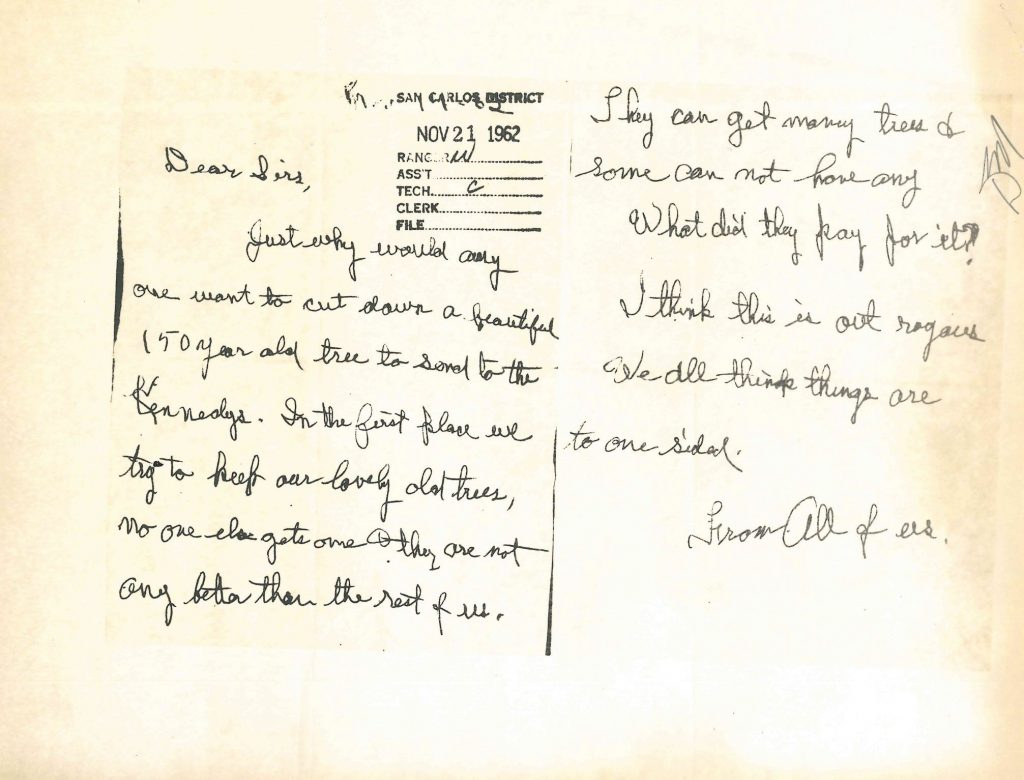 SAN CARLOS DISTRICT
NOV 21 1962
RANGER
ASS'T
TECH. C
CLERK
FILE
Dear Sirs,
Just why would any
one want to cut down a beautiful
150 year old tree to send to the
Kennedys. In the first place we
try to keep our lovely old trees,
no one else gets one & they are not
any better than the rest of us.
They can get many trees &
some can not have any
What did they pay for it?
I think this is out ragous
We all think things are
to one sided.
From All of us.